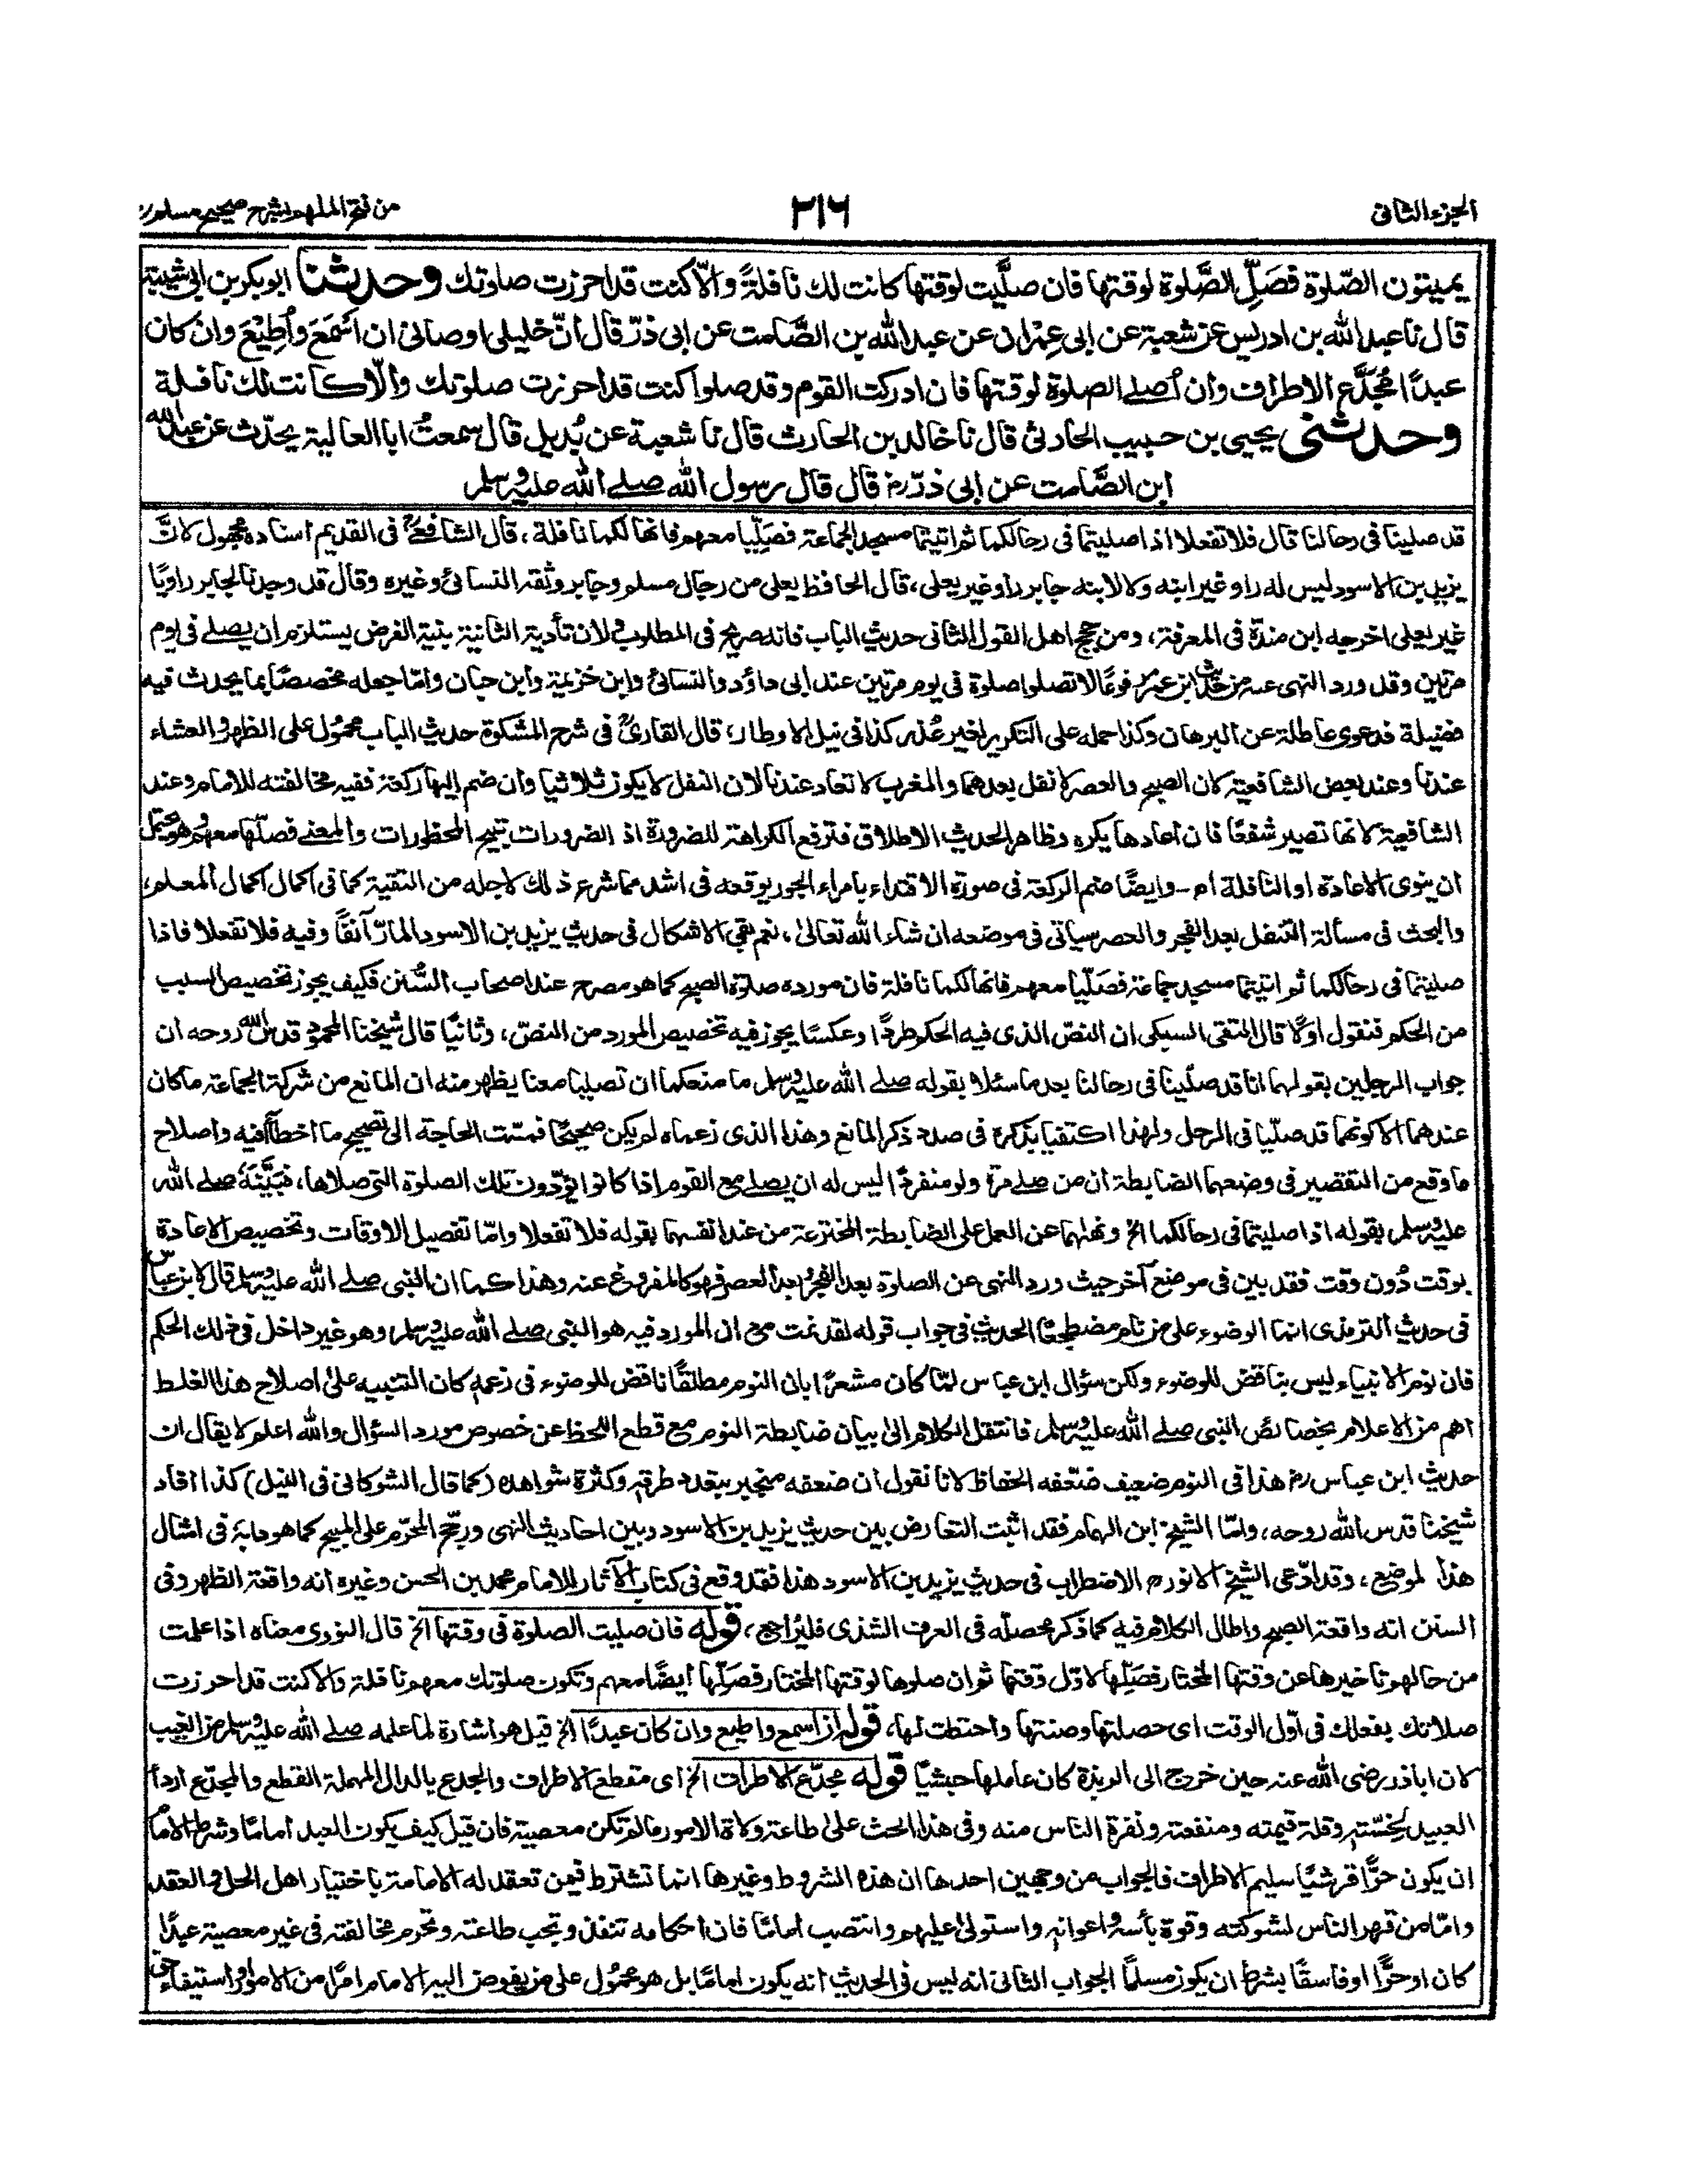 الجزء الثانى
٢١٦
من فتح الملهم بشرح صحيح مسلم
يميتون الصّلوة فصَلِّ الصَّلوة لوقتها فان صلَّيت لوقتها كانت لك نافلةً والّا كنت قد احرزت صلوتك وحدثنا ابو بكر بن ابى شيبة
قال نا عبد الله بن ادريس عن شعبة عن ابى عِمْران عن عبد الله بن الصَّامت عن ابى ذرّ قال انّ خليلى اوصانى ان اَسْمَعَ واُطِيْعَ وان كان
عبدًا مُجَدَّع الاطراف وان اُصلے الصلوة لوقتها فان ادركت القوم وقد صلوا كنت قد احرزت صلوتك والّا كانت لك نافلة
وحدثنى يحيى بن حبيب الحارثى قال نا خالد بن الحارث قال نا شعبة عن بُديل قال سمعتُ ابا العالية يحدّث عن عبد الله
ابن الصَّامت عن ابى ذرّ رض قال قال رسول الله صلے الله عليه وسلم
قد صلينا فى رحالنا قال فلا تفعلا اذا صليتما فى رحالكما ثم اتيتما مسجد الجماعة فصَلِّيا معهم فانها لكما نافلة، قال الشافعىؒ فى القديم اسناده مجهول لانَّ
يزيد بن الاسود ليس له راو غير ابنه ولا لابنه جابر راو غير يعلى، قال الحافظ يعلى من رجال مسلم وجابر وثقه النسائى وغيره وقال قد وجدنا لجابر راويًا
غير يعلى اخرجه ابن مندة فى المعرفة، ومن حجج اهل القول الثانى حديث الباب فانه صريح فى المطلوب ولان تأدية الثانية بنية الفرض يستلزم ان يصلے فى يوم
مرتين وقد ورد النهى عنه من حديث ابن عمر مرفوعًا لا تصلوا صلوة فى يوم مرتين عند ابى داؤد والنسائى وابن خزيمة وابن حبان وامّا جعله مخصصًا بما يحدث فيه
فضيلة فدعوى عاطلة عن البرهان وكذا حمله على التكرير لغير عُذر كذا فى نيل الاوطار، قال القارىؒ فى شرح المشكوة حديث الباب محمُول على الظهر والعشاء
عندنا وعند بعض الشافعية لان الصبح والعصر لا نفل بعدهما والمغرب لا تعاد عندنا لان النفل لا يكون ثلاثيا وان ضم اليها ركعة ففيه مخالفته للامام وعند
الشافعية لانها تصير شفعًا فان اعادها يكره وظاهر الحديث الاطلاق فترفع الكراهة للضرورة اذ الضرورات تبيح المحظورات والمعنے فصلّها معهم وهو يحتمل
ان ينوى الاعادة او النافلة اه - وايضًا ضم الركعة فى صورة الاقتداء بامراء الجور يوقعه فى اشد مما شرع ذلك لاجله من التقية كما فى اكمال اكمال المعلم،
والبحث فى مسألة التنفل بعد الفجر والعصر سيأتى فى موضعه ان شاء الله تعالىٰ، نعم بقى الاشكال فى حديث يزيد بن الاسود المارّ آنفًا وفيه فلا تفعلا فاذا
صليتما فى رحالكما ثم اتيتما مسجد جماعة فصَلِّيا معهم فانها لكما نافلة فان مورده صلوة الصبح كما هو مصرح عند اصحاب السُّنن فكيف يجوز تخصيص السبب
من الحكم فنقول اوّلًا قال التقى السبكى ان النصّ الذى فيه الحكم طردًا وعكسًا يجوز فيه تخصيص المورد من النصّ، وثانيًا قال شيخنا المحمود قدس الله روحه ان
جواب الرجلين بقولهما انا قد صلّينا فى رحالنا بعد ما سئلا بقوله صلے الله عليه وسلم ما منعكما ان تصليا معنا يظهر منه ان المانع من شركة الجماعة ما كان
عندهما الا كونهما قد صلّيا فى الرحل ولهذا اكتفيا بذكره فى صدد ذكر المانع وهذا الذى زعماه لم يكن صحيحًا فمسّت الحاجة الى تصحيح ما اخطآ فيه واصلاح
ما وقع من التقصير فى وضعهما الضابطة ان من صلے مرة ولو منفردًا ليس له ان يصلے مع القوم اذا كانوا يؤدّون تلك الصلوة التى صلاها، فبَيَّنَهٗ صلے الله
عليه وسلم بقوله اذا صليتما فى رحالكما الخ ونهاهما عن العمل على الضابطة المخترعة من عند انفسهما بقوله فلا تفعلا وامّا تفصيل الاوقات وتخصيص الاعادة
بوقت دُون وقت فقد بين فى موضع آخر حيث ورد النهى عن الصلوة بعد الفجر وبعد العصر فهو كالمفروغ عنه وهذا كما ان النبى صلے الله عليه وسلم قال لابن عباس
فى حديث الترمذى انما الوضوء على من نام مضطجعًا الحديث فى جواب قوله لقد نمت مع ان المورد فيه هو النبى صلے الله عليه وسلم وهو غير داخل فى ذلك الحكم
فان نوم الانبياء ليس بناقض للوضوء ولكن سؤال ابن عباس لمّا كان مشعرًا بان النوم مطلقًا ناقض للوضوء فى زعمه كان التنبيه علىٰ اصلاح هذا الغلط
اهم من الاعلام بخصائص النبى صلے الله عليه وسلم فانتقل الكلام الى بيان ضابطة النوم مع قطع اللحظ عن خصوص مورد السؤال والله اعلم لا يقال ان
حديث ابن عباس رض هذا فى النوم ضعيف ضعّفه الحفاظ لانا نقول ان ضعفه منجبر بتعدد طرقه وكثرة شواهده (كما قال الشوكانى فى النيل) كذا افاد
شيخنا قدس الله روحه، وامّا الشيخ ابن الهمام فقد اثبت التعارض بين حديث يزيد بن الاسود وبين احاديث النهى ورجّح المحرّم على المبيح كما هو دابه فى امثال
هذا لموضع، وقد ادّعى الشيخ الانور رح الاضطراب فى حديث يزيد بن الاسود هذا فقد وقع فى كتاب الآثار للامام محمد بن الحسن وغيره انه واقعة الظهر وفى
السنن انه واقعة الصبح واطال الكلام فيه كما ذكر محصله فى العرف الشذى فليُراجع، قوله فان صليت الصلوة فى وقتها الخ قال النووى معناه اذا علمت
من حالهم تاخيرها عن وقتها المختار فصَلِّها لاوّل وقتها ثم ان صلوها لوقتها المختار فصَلِّها ايضًا معهم وتكون صلوتك معهم نافلة والا كنت قد احرزت
صلاتك بفعلك فى اوّل الوقت اى حصلتها وصنتها واحتطت لها، قوله ان اسمع واطيع وان كان عبدًا الخ قيل هو اشارة لما علمه صلے الله عليه وسلم من الغيب
لان اباذر رضى الله عنه حين خرج الى الربذة كان عاملها حبشيًا قوله مجدّع الاطراف الخ اى مقطع الاطراف والجدع بالدال المهملة القطع والمجدّع اردأ
العبيد لخِسّته وقلة قيمته ومنفعته ونفرة الناس منه وفى هذا الحث على طاعة ولاة الامور ما لم تكن معصية فان قيل كيف يكون العبد امامًا وشرط الامام
ان يكون حرًّا قرشيًا سليم الاطراف فالجواب من وجهين احدها ان هذه الشروط وغيرها انما تشترط فيمن تعقد له الامامة باختيار اهل الحل والعقد
وامّا من قهر الناس لشوكته وقوة بأسه واعوانه واستولىٰ عليهم وانتصب امامًا فان احكامه تنفذ وتجب طاعته وتحرم مخالفته فى غير معصية عبدًا
كان او حرًّا او فاسقًا بشرط ان يكون مسلمًا الجواب الثانى انه ليس فى الحديث انه يكون امامًا بل هو محمُول على من يفوض اليه الامام امرًا من الامور او استيفاء حق